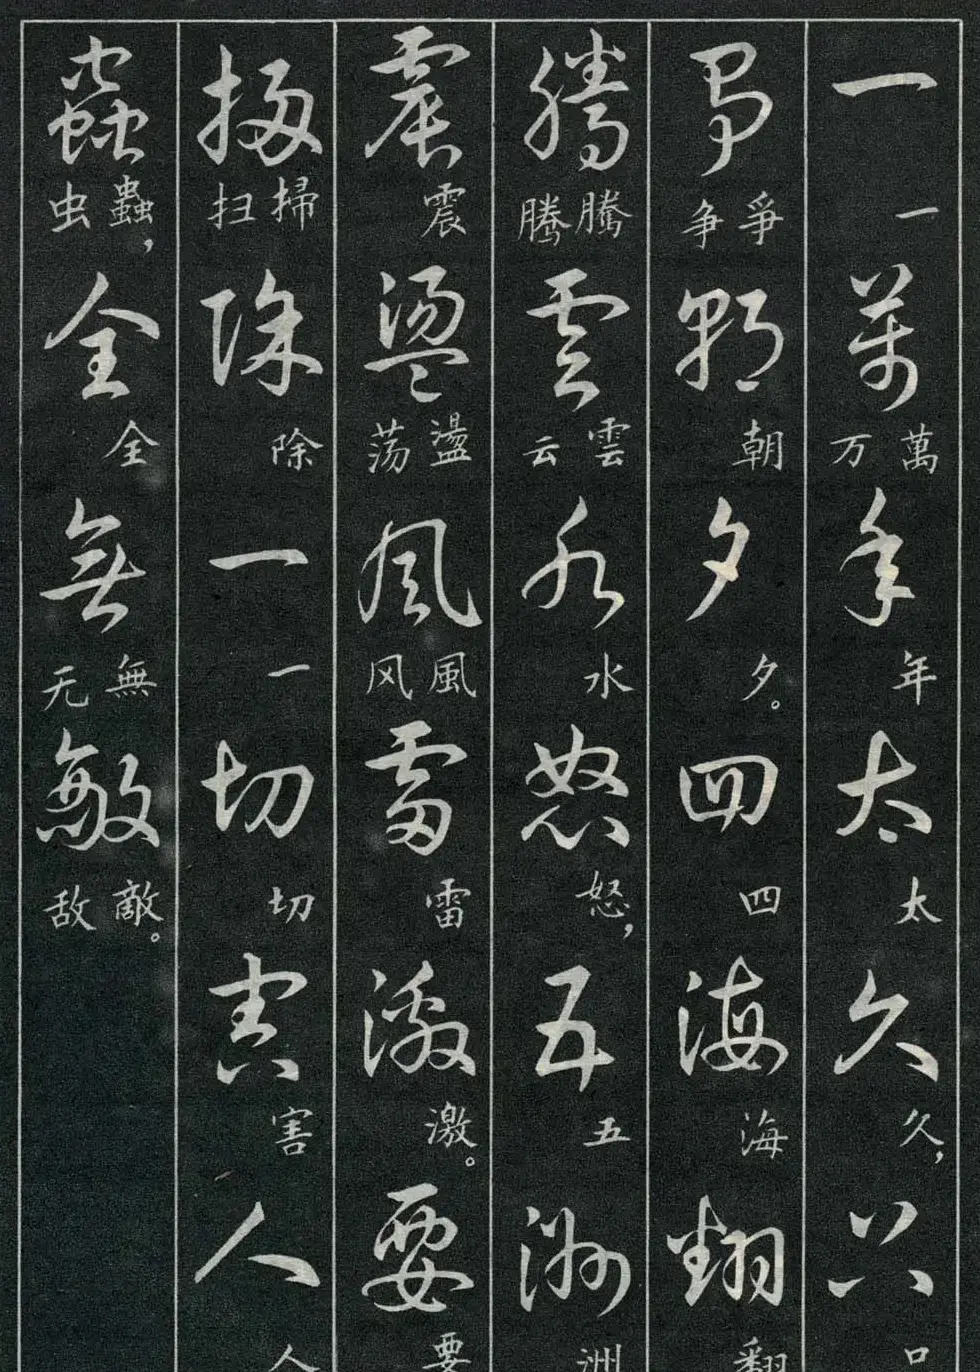 一一萬萬万年年太太久久，只只
爭爭争朝朝夕夕。四四海海翻翻
騰騰腾雲雲云水水怒怒，五五洲洲
震震盪盪荡風風风雷雷激激。要要
掃掃扫除除一一切切害害人人
蟲蟲虫，全全無無无敵敵敌。